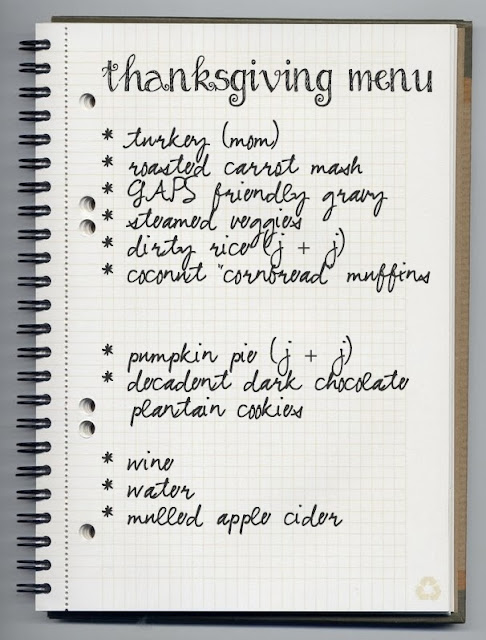 thanksgiving menu
* turkey (mom)
* roasted carrot mash
* GAPS friendly gravy
* steamed veggies
* dirty rice (j + j)
* coconut "cornbread" muffins
* pumpkin pie (j + j)
* decadent dark chocolate
plantain cookies
* wine
* water
* mulled apple cider